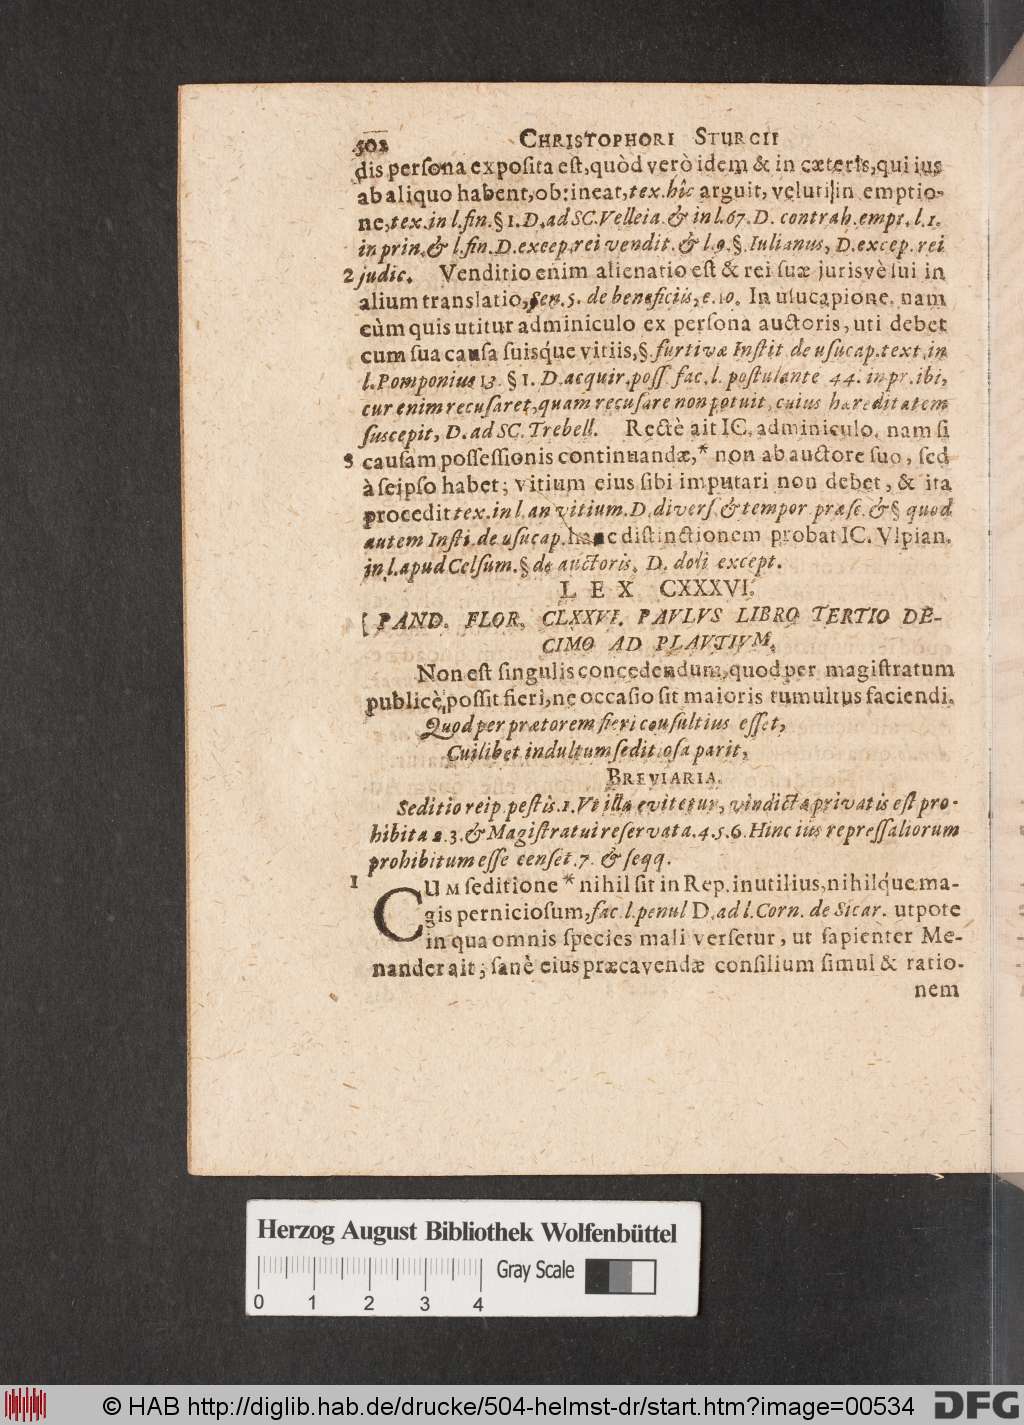 502 CHRISTOPHORI STURCII
dis persona exposita est, quòd verò idem & in cæteris, qui ius
ab aliquo habent, obtineat, tex. hîc arguit, veluti in emptio-
ne, tex. in l. fin. § 1. D. ad SC. Velleia. & in l. 67. D. contrah. empt. l. 1.
in prin. & l. fin. D. excep. rei vendit. & l. 9. §. Iulianus, D. excep. rei
2 judic. Venditio enim alienatio est & rei suæ jurisvè sui in
alium translatio, Sen. 5. de beneficiis, c. 10. In usucapione. nam
cùm quis utitur adminiculo ex persona auctoris, uti debet
cum sua causa suisq́ue vitiis, §. furtivæ Instit de usucap. text. in
l. Pomponius 13. § 1. D. acquir. poss fac. l. postulante 44. in pr. ibi,
cur enim recusaret, quam recusare non potuit, cuius hæreditatem
suscepit, D. ad SC. Trebell. Rectè ait IC. adminiculo. nam si
3 causam possessionis continuandæ, * non ab auctore suo, sed
à seipso habet; vitium eius sibi imputari non debet, & ita
procedit tex. in l. an vitium. D. divers. & tempor præse. & § quod
autem Insti. de usucap. hanc distinctionem probat IC. Vlpian.
in l. apud Celsum. § de auctoris, D. doli except.
LEX CXXXVI.
[PAND. FLOR. CLXXVI. PAVLVS LIBRO TERTIO DE-
CIMO AD PLAVTIVM.
Non est singulis concedendum, quod per magistratum
publicè possit fieri, ne occasio sit maioris tumultus faciendi.
Quod per prætorem fieri consultius esset,
Cuilibet indultum seditiosa parit,
BREVIARIA.
Seditio reip. pestis. 1. Vt illa evitetur, vindicta privatis est pro-
hibita 2. 3. & Magistratui reservata. 4. 5. 6. Hinc ius repressaliorum
prohibitum esse censet. 7. & seqq.
1 CUM seditione * nihil sit in Rep. inutilius, nihilq́ue ma-
gis perniciosum, fac. l. penul D. ad l. Corn. de Sicar. utpote
in qua omnis species mali versetur, ut sapienter Me-
nander ait; sanè eius præcavendæ consilium simul & ratio-
nem
Herzog August Bibliothek Wolfenbüttel
Gray Scale
0 1 2 3 4
© HAB http://diglib.hab.de/drucke/504-helmst-dr/start.htm?image=00534
DFG